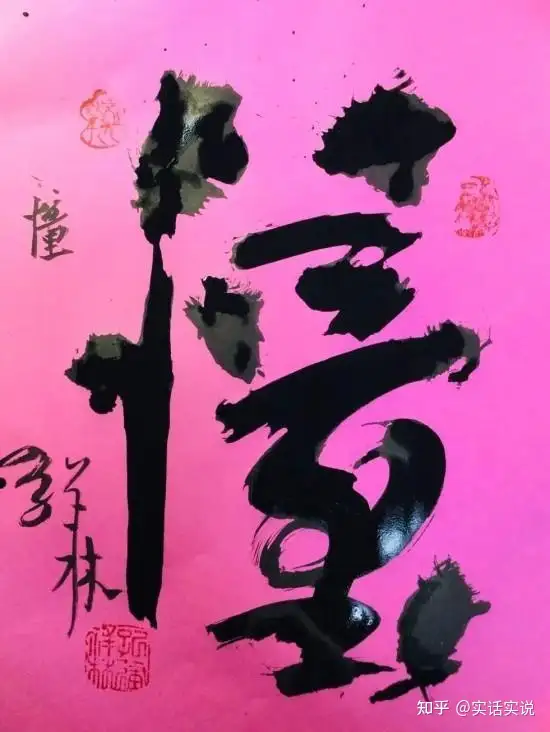 憧
憧
祥林
知乎 @实话实说